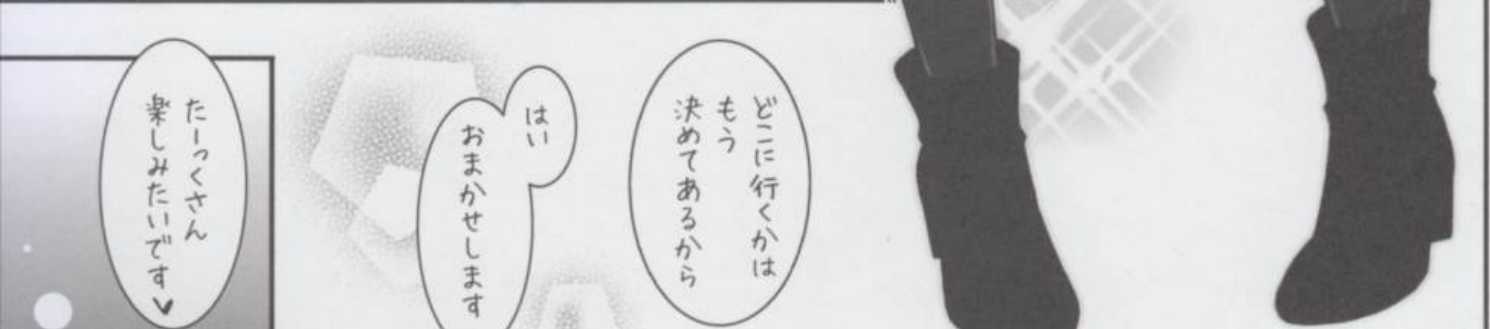 どこに行くかは
もう
決めてあるから
はい
おまかせします
たーっくさん
楽しみたいです♥